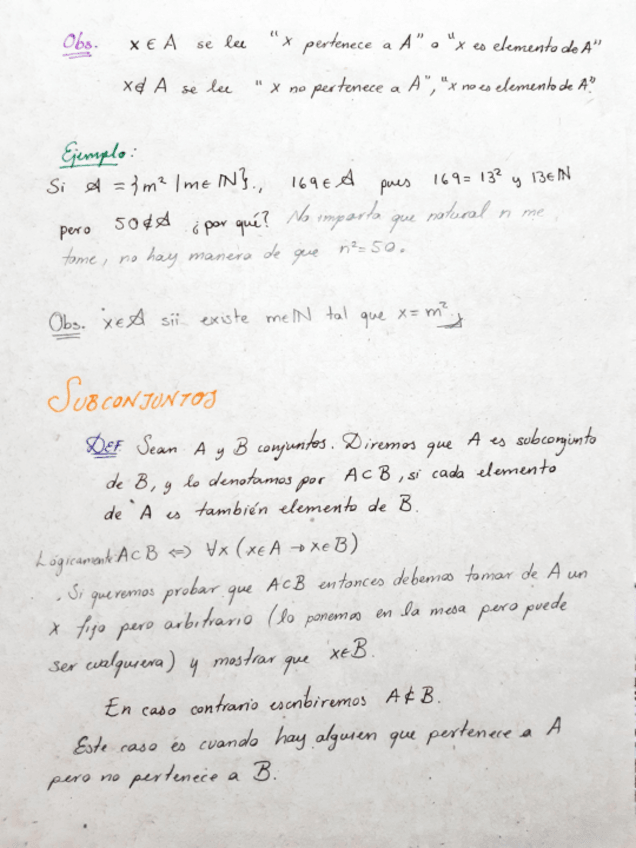 Obs. x ∈ A se lee "x pertenece a A" o "x es elemento de A"
x ∉ A se lee "x no pertenece a A", "x no es elemento de A"
Ejemplo:
Si A = {m² | m ∈ ℕ}., 169 ∈ A pues 169 = 13² y 13 ∈ ℕ
pero 50 ∉ A ¿por qué? No importa que natural n me
tome, no hay manera de que n² = 50.
Obs. x ∈ A sii existe m ∈ ℕ tal que x = m².
SUBCONJUNTOS
DEF Sean A y B conjuntos. Diremos que A es subconjunto
de B, y lo denotamos por A ⊂ B, si cada elemento
de A es también elemento de B.
Lógicamente: A ⊂ B ⇔ ∀x (x ∈ A → x ∈ B)
. Si queremos probar que A ⊂ B entonces debemos tomar de A un
x fijo pero arbitrario (lo ponemos en la mesa pero puede
ser cualquiera) y mostrar que x ∈ B.
En caso contrario escribiremos A ⊄ B.
Este caso es cuando hay alguien que pertenece a A
pero no pertenece a B.